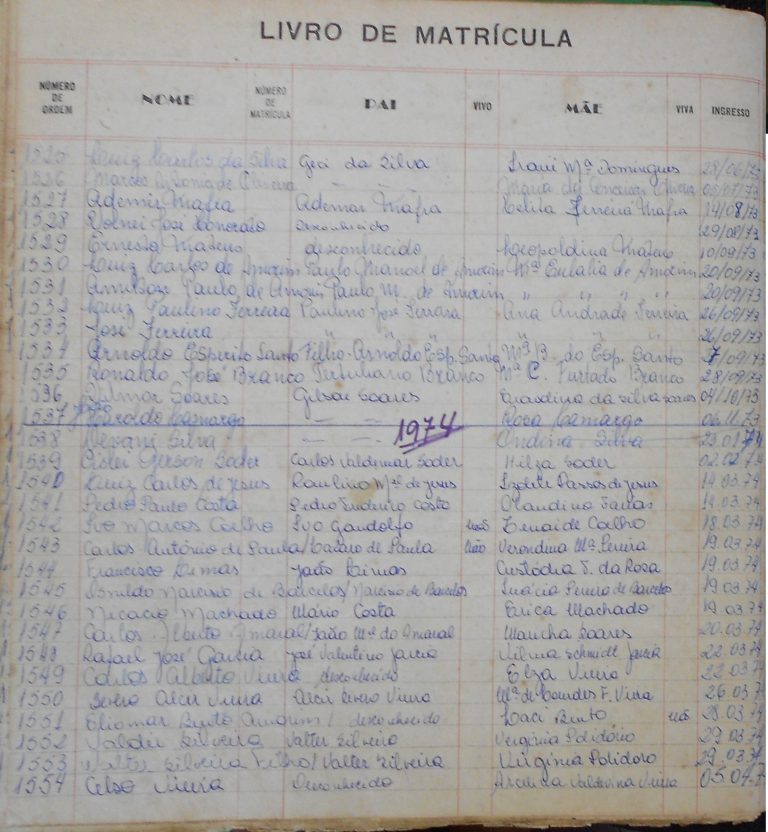 LIVRO DE MATRÍCULA
NÚMERO DE ORDEM NOME NÚMERO DE MATRÍCULA PAI VIVO MÃE VIVA INGRESSO
1525 Luiz Carlos da Silva Geci da Silva Iraui Mª Domingues 28/06/73
1526 Marcos de Oliveira — — Maria da Conceicao Oliveira
1527 Ademir Mafra Ademar Mafra Celita Ferreira Mafra 14/08/73
1528 Volnei José Honorato desconhecido 29/08/73
1529 Ernesto Mateus desconhecido Leopoldina Mateus 10/09/73
1530 Luiz Carlos de Amorim Paulo Manoel de Amorim Mª Eulalia de Amorim 20/09/73
1531 Amilson Paulo de Amorim Paulo M. de Amorim " " " " 20/09/73
1532 Luiz Paulino Ferreira Paulino José Ferreira Ana Andrade Ferreira 26/09/73
1533 José Ferreira " " " " " 26/09/73
1534 Arnoldo Espirito Santo Filho Arnoldo Esp. Santo Mª B. do Esp. Santo 7/09/73
1535 Ronaldo José Branco Tertuliano Branco Mª C. Furtado Branco 28/09/73
1536 Vilmar Soares Gilson Soares da Silva Soares 04/10/73
1537 Haroldo Camargo Rosa Camargo 06.11.73
1974
1538 Silva — — Ondina Silva 23.01.74
1539 Gerson Soder Carlos Valdemar Soder Hilza Soder 02.02.74
1540 Luiz Carlos de Jesus Paulino Mel de Jesus Izolete Passos de Jesus 14.03.74
1541 Pedro Paulo Costa Pedro Costa Olandina Farias 14.03.74
1542 Ivo Marcos Coelho Ivo Gandolfo Zenaide Coelho 18.03.74
1543 Carlos Antônio de Paula/Lazaro de Paula Não Verondina Mª Pereira 19.03.74
1544 Francisco Dimas João Dimas Custódia F. da Rosa 19.03.74
1545 Osnildo Narciso de Barcelos/Narciso de Barcelos Inácia Pereira de Barcelos 19.03.74
1546 Nicacio Machado Mário Costa Erica Machado 19.03.74
1547 Carlos Alberto Amaral/João Mel do Amaral Soares 20.03.74
1548 Rafael José Garcia José Valentino Garcia Vilma Schmidt Garcia 22.03.74
1549 Carlos Alberto Vieira desconhecido Elza Vieira 22.03.74
1550 Severo Alcir Vieira Alcir Severo Vieira Mª de Lourdes F. Vieira 26.03.74
1551 Eliomar Bento Amorim/ desconhecido Laci Bento 28.03.74
1552 Valdir Silveira Valter Silveira Verginia Polidório 29.03.74
1553 Valter Silveira Filho/Valter Silveira Virginia Polidoro 29.03.74
1554 Celso Vieira Desconhecido Valdivina Vieira 05.04.7